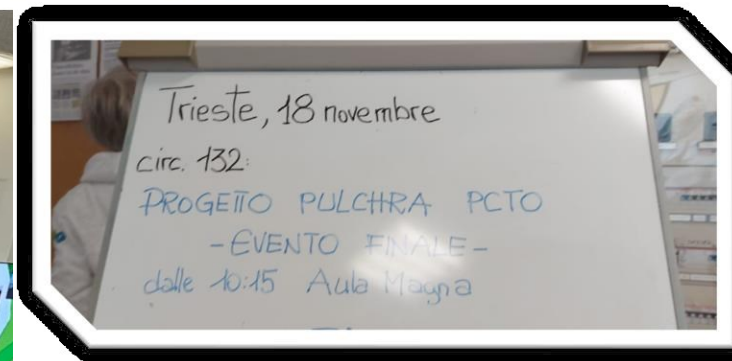 Trieste, 18 novembre
circ. 132:
PROGETTO PULCHRA PCTO
- EVENTO FINALE -
dalle 10:15 Aula Magna